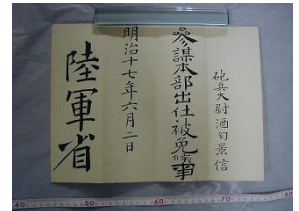 砲兵大尉酒匂景信
参謀本部出仕被免候事
明治十七年六月二日
陸軍省
40 50 60 70 80